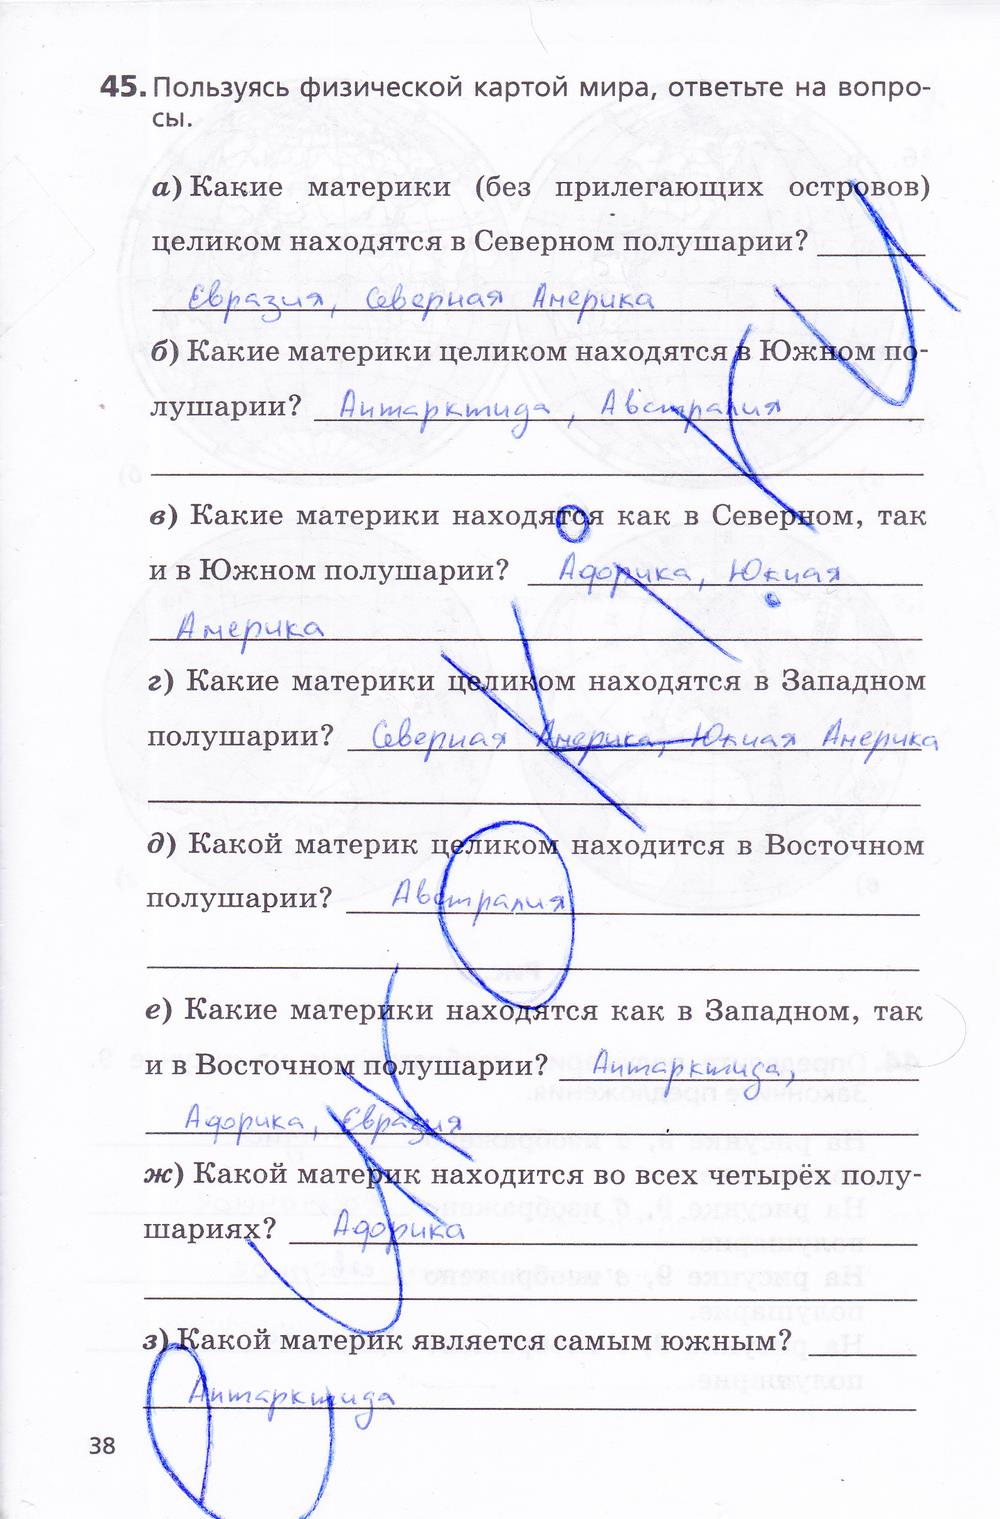 45. Пользуясь физической картой мира, ответьте на вопро-
сы.
а) Какие материки (без прилегающих островов)
целиком находятся в Северном полушарии?
Евразия, Северная Америка
б) Какие материки целиком находятся в Южном по-
лушарии? Антарктида, Австралия
в) Какие материки находятся как в Северном, так
и в Южном полушарии? Африка, Южная
Америка
г) Какие материки целиком находятся в Западном
полушарии? Северная Америка, Южная Америка
д) Какой материк целиком находится в Восточном
полушарии? Австралия
е) Какие материки находятся как в Западном, так
и в Восточном полушарии? Антарктида,
Африка, Евразия
ж) Какой материк находится во всех четырёх полу-
шариях? Африка
з) Какой материк является самым южным?
Антарктида
38